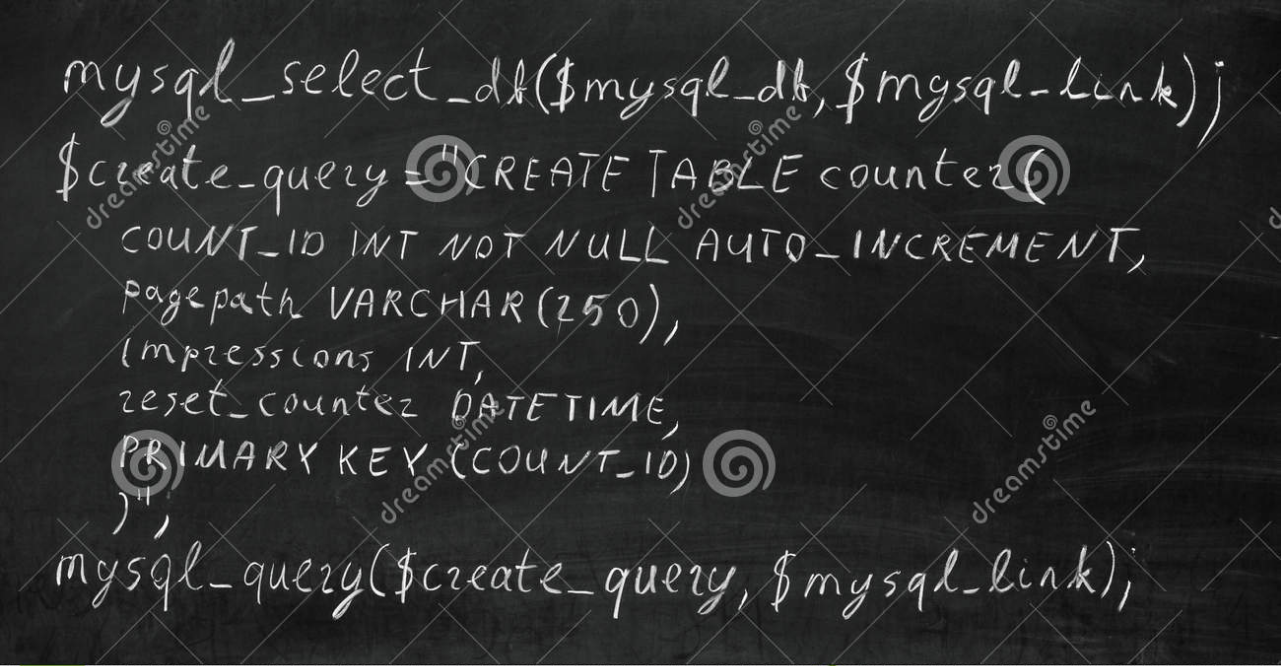 mysql_select_db($mysql_db, $mysql_link);
$create_query = "CREATE TABLE counter(
COUNT_ID INT NOT NULL AUTO_INCREMENT,
pagepath VARCHAR(250),
impressions INT,
reset_counter DATETIME,
PRIMARY KEY (COUNT_ID)
)";
mysql_query($create_query, $mysql_link);
dreamstime
dreamstime
dreamstime
dreamstime